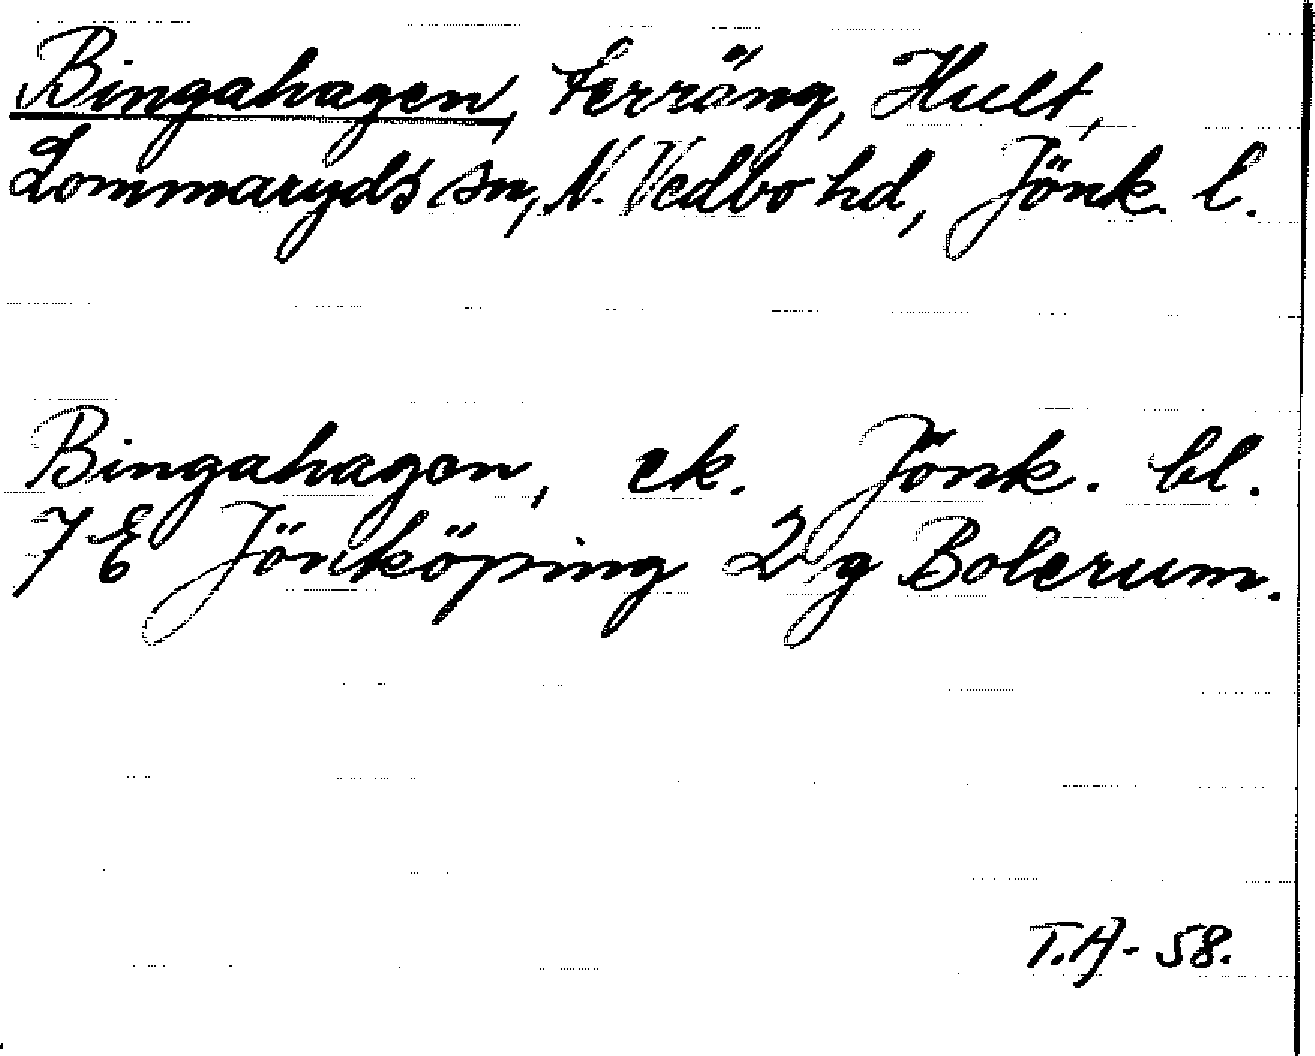 Bingahagen, terräng, Hult,
Lommaryds sn, N. Vedbo hd, Jönk. l.
Bingahagen, ek. Jönk. bl.
7 E Jönköping 2 g Bolerum.
T.A - 58.